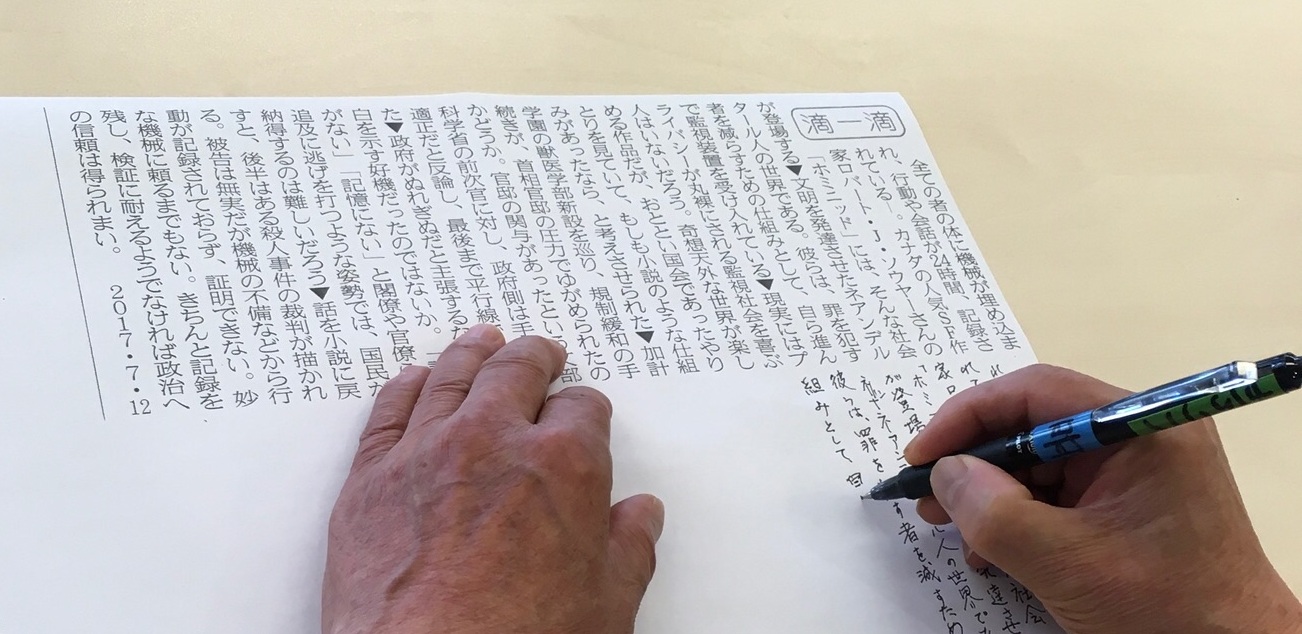 滴一滴
全ての者の体に機械が埋め込ま
れ、行動や会話が24時間、記録さ
れている―。カナダの人気SF作
家ロバート・J・ソウヤーさんの
「ホミニッド」には、そんな社会
が登場する▼文明を発達させたネアンデル
タール人の世界である。彼らは、罪を犯す
者を減らすための仕組みとして、自ら進ん
で監視装置を受け入れている▼現実にはプ
ライバシーが丸裸にされる監視社会を喜ぶ
人はいないだろう。奇想天外な世界が楽し
める作品だが、おととい国会であったやり
とりを見ていて、もしも小説のような仕組
みがあったなら、と考えさせられた▼加計
学園の獣医学部新設を巡り、規制緩和の手
続きが、首相官邸の圧力でゆがめられたの
かどうか。官邸の関与があったという 部
科学省の前次官に対し、政府側は手
適正だと反論し、最後まで平行線
た▼政府がぬれぎぬだと主張する
白を示す好機だったのではないか。
がない」「記憶にない」と閣僚や官僚
追及に逃げを打つような姿勢では、国民が
納得するのは難しいだろう▼話を小説に戻
すと、後半はある殺人事件の裁判が描かれ
る。被告は無実だが機械の不備などから行
動が記録されておらず、証明できない。妙
な機械に頼るまでもない。きちんと記録を
残し、検証に耐えるようでなければ政治へ
の信頼は得られまい。 2017・7・12
れ
れて 社会
家ロ 達させ
「ホミニ 人の世界で
が登場
ネアン す者を減すため
彼らは、罪を
組みとして、自